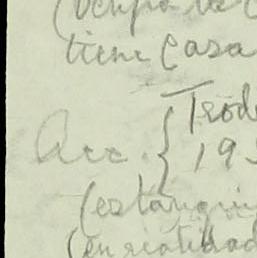 (Ocupa la
tiene Casa
Acc. { Trod
19
(estanqui
(en realidad